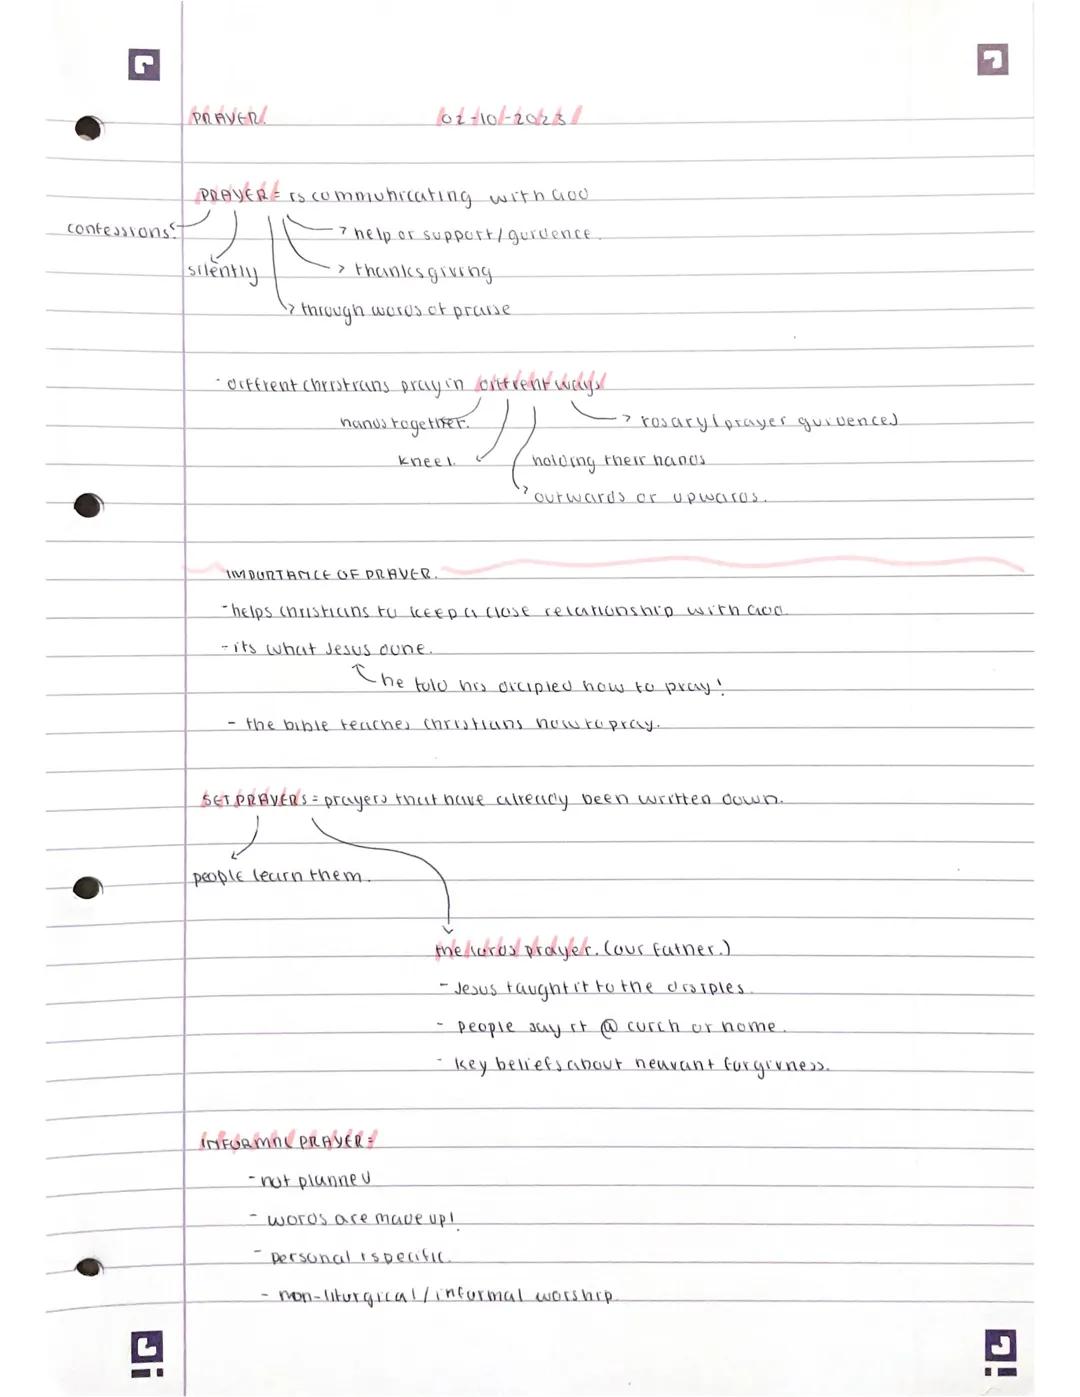 PRAYER. 02-10-2023
PRAYER = is communicating with God
confessions.
> help or support/guidence.
silently
> thanksgiving
> through words of praise
- different christians pray in diffrent ways
hands together.
> rosary (prayer guidence)
kneel.
holding their hands
outwards or upwards.
IMPORTANCE OF PRAYER.
- helps christians to keep a close relationship with God.
- its what Jesus done.
he told his discipled how to pray!
- the bible teaches christians how to pray.
SET PRAYERS = prayers that have already been written down.
people learn them.
the lords prayer. (our father.)
- Jesus taught it to the disiples.
- people say it @ curch or home.
- key beliefs about forgivness.
INFORMAL PRAYER =
- not planned
- words are made up!
- personal specific.
- non-liturgical/informal worship.